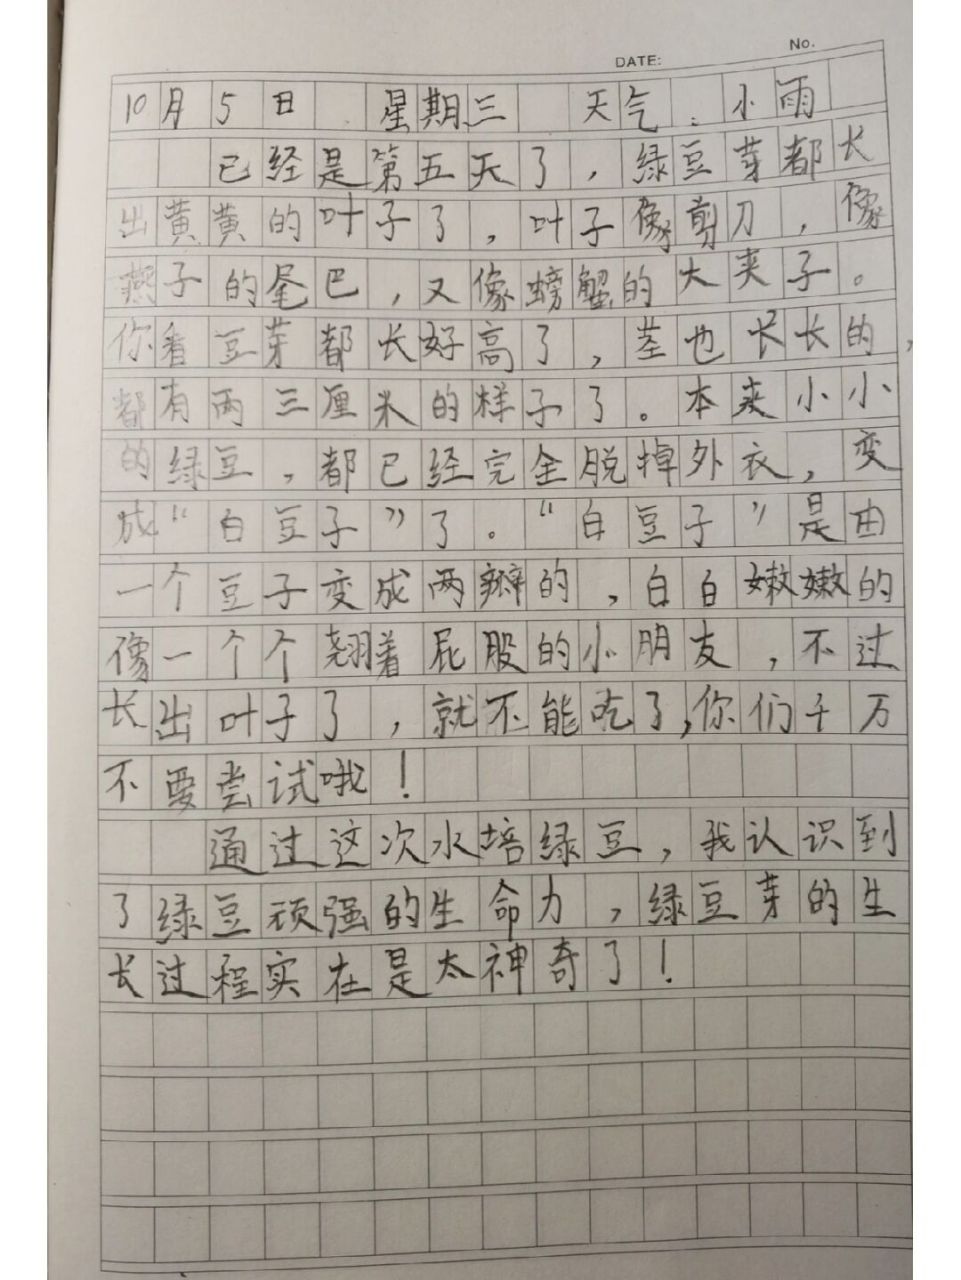 No.
DATE:
10月5日 星期三 天气:小雨
已经是第五天了,绿豆芽都长
出黄黄的叶子了,叶子像剪刀,像
燕子的尾巴,又像螃蟹的大夹子。
你看豆芽都长好高了,茎也长长的,
都有两三厘米的样子了。本来小小
的绿豆,都已经完全脱掉外衣,变
成“白豆子”了。“白豆子”是由
一个豆子变成两瓣的,白白嫩嫩的
像一个个翘着屁股的小朋友,不过
长出叶子了,就不能吃了,你们千万
不要尝试哦!
通过这次水培绿豆,我认识到
了绿豆顽强的生命力,绿豆芽的生
长过程实在是太神奇了!